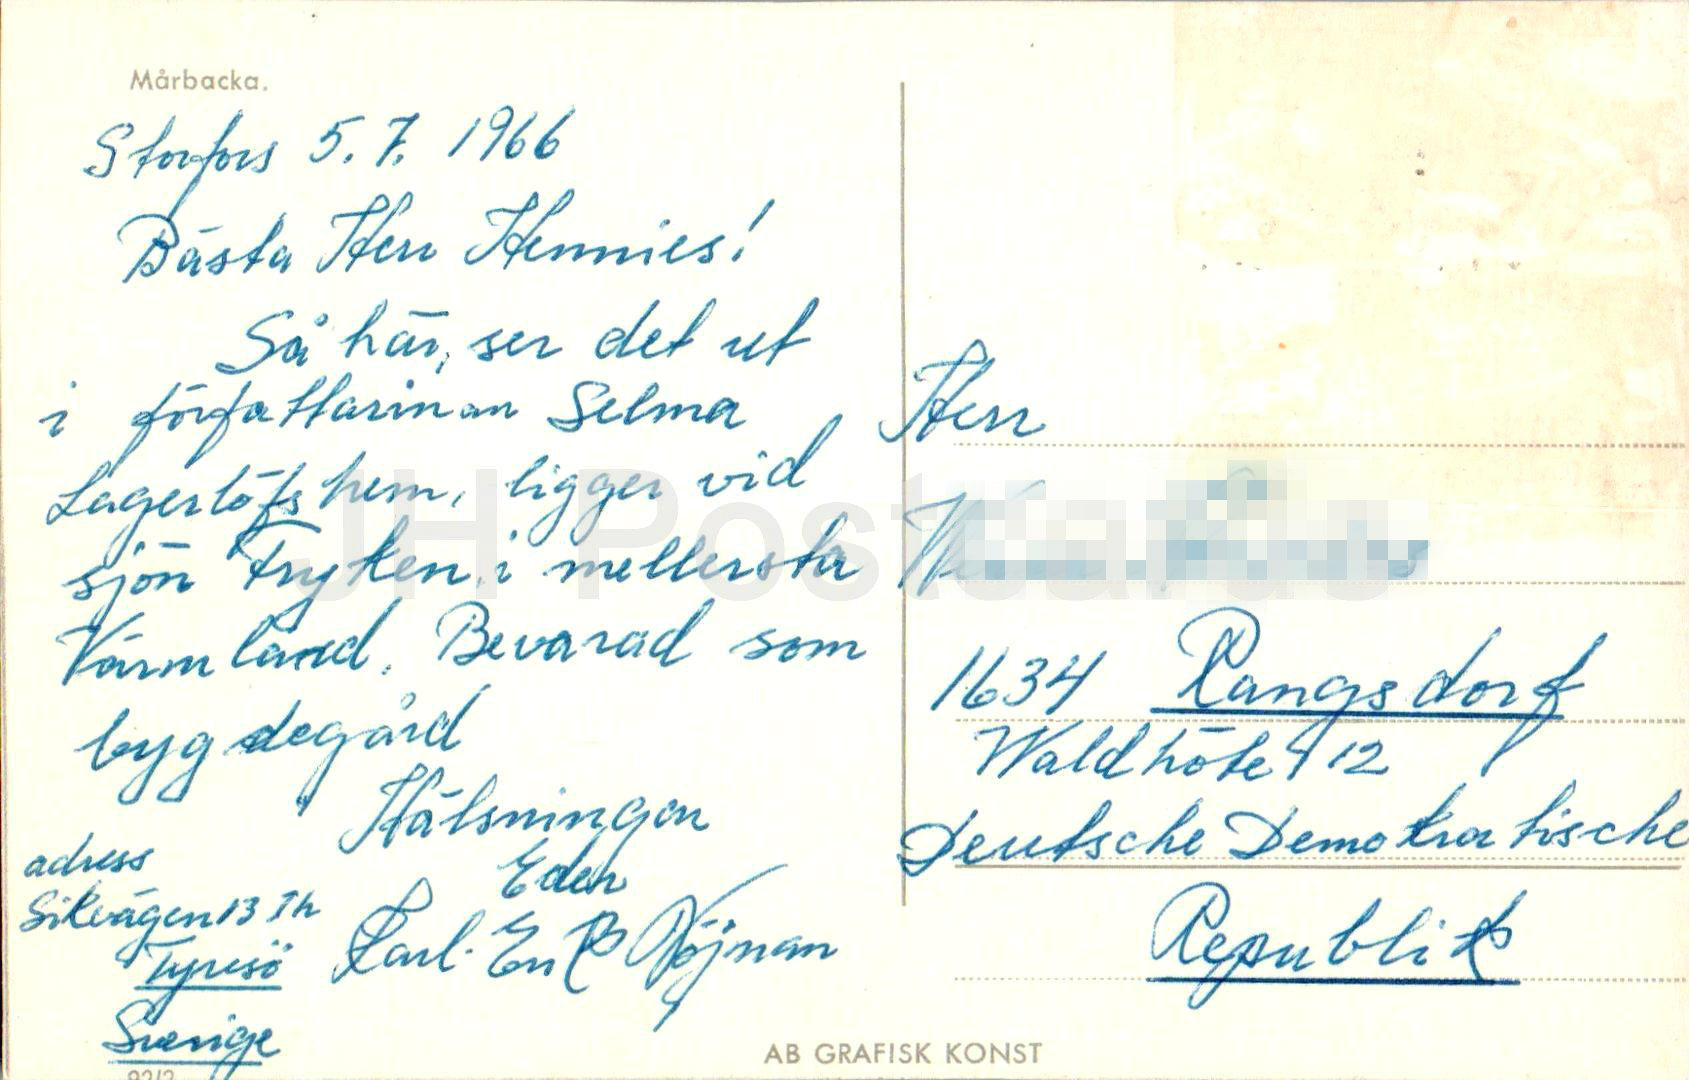 Mårbacka.
Storfors 5.7. 1966
Bästa Herr Hennies!
Så här, ser det ut
i författarinnan Selma
Lagerlöfs hem, ligger vid
sjön Fryken, i mellersta
Värmland. Bevarad som
bygdegård
Hälsningar
Eder
Karl-Erik Nöjman
adress
Sikvägen 13 Th
Tyresö
Sverige
92/2
Herr
1634 Rangsdorf
Waldhöhe 12
Deutsche Demokratische
Republik
AB GRAFISK KONST
JH Postcards